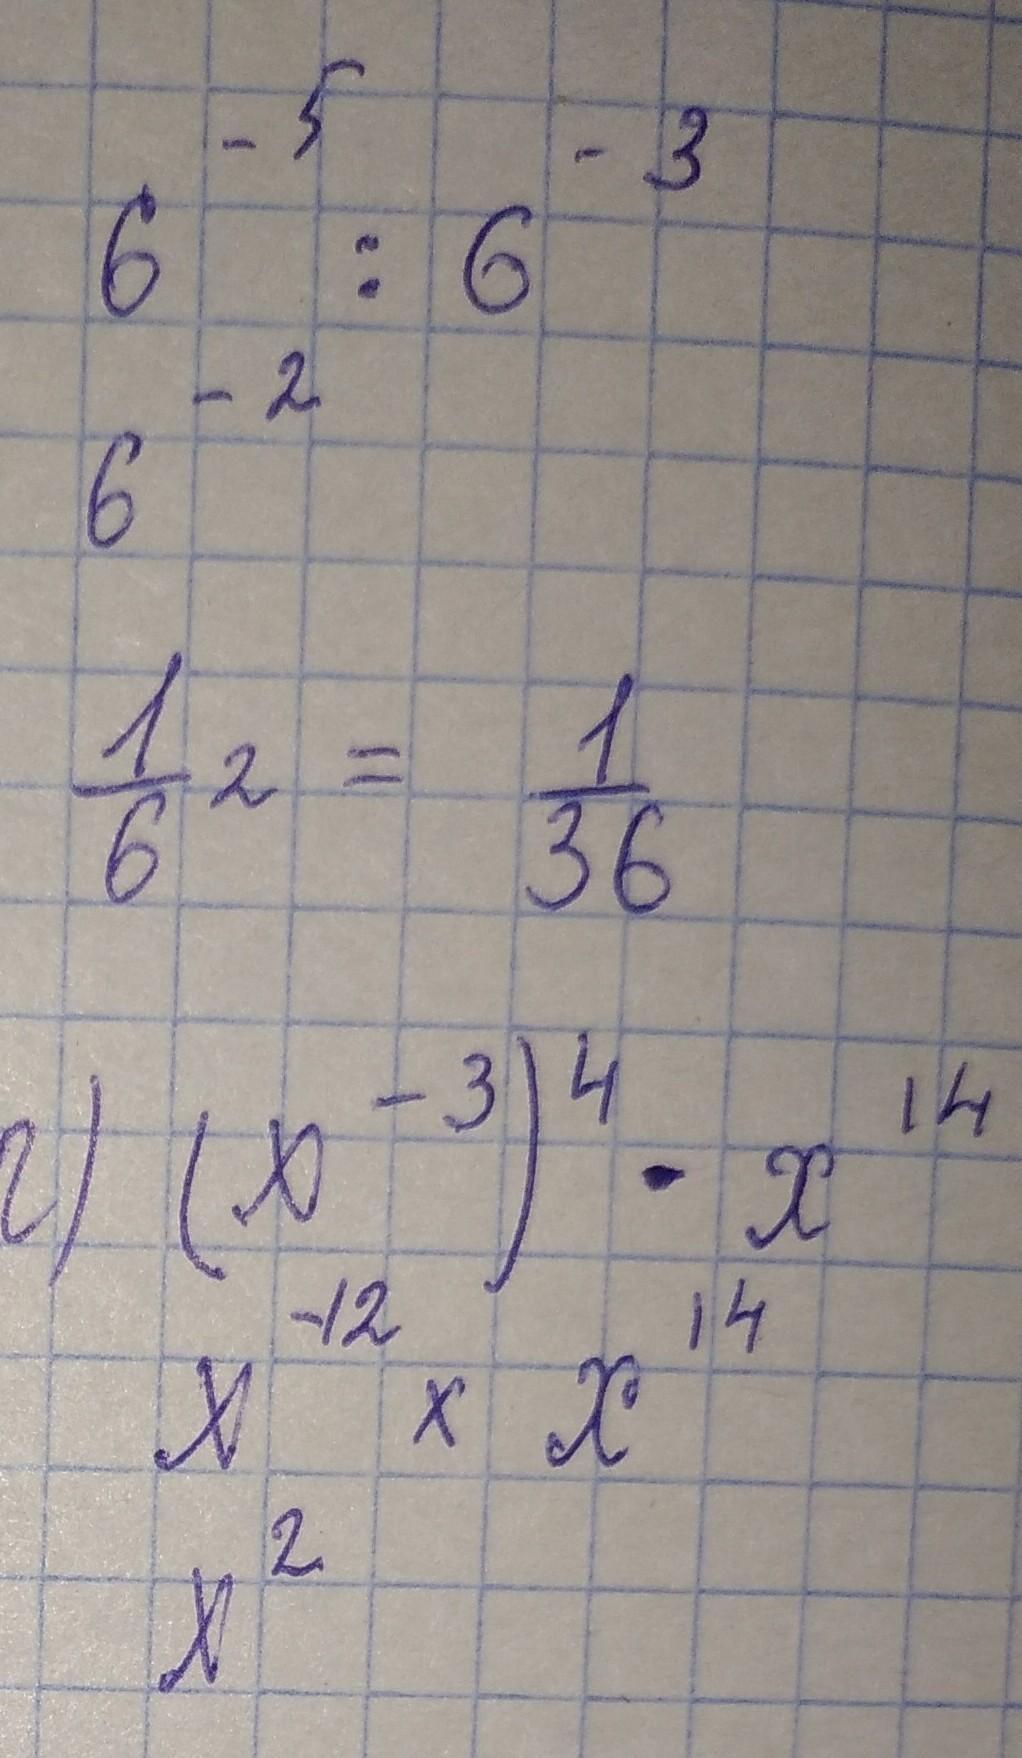 6⁻⁵ : 6⁻³
6⁻²
1/6² = 1/36
г) (x⁻³)⁴ · x¹⁴
x⁻¹² × x¹⁴
x²